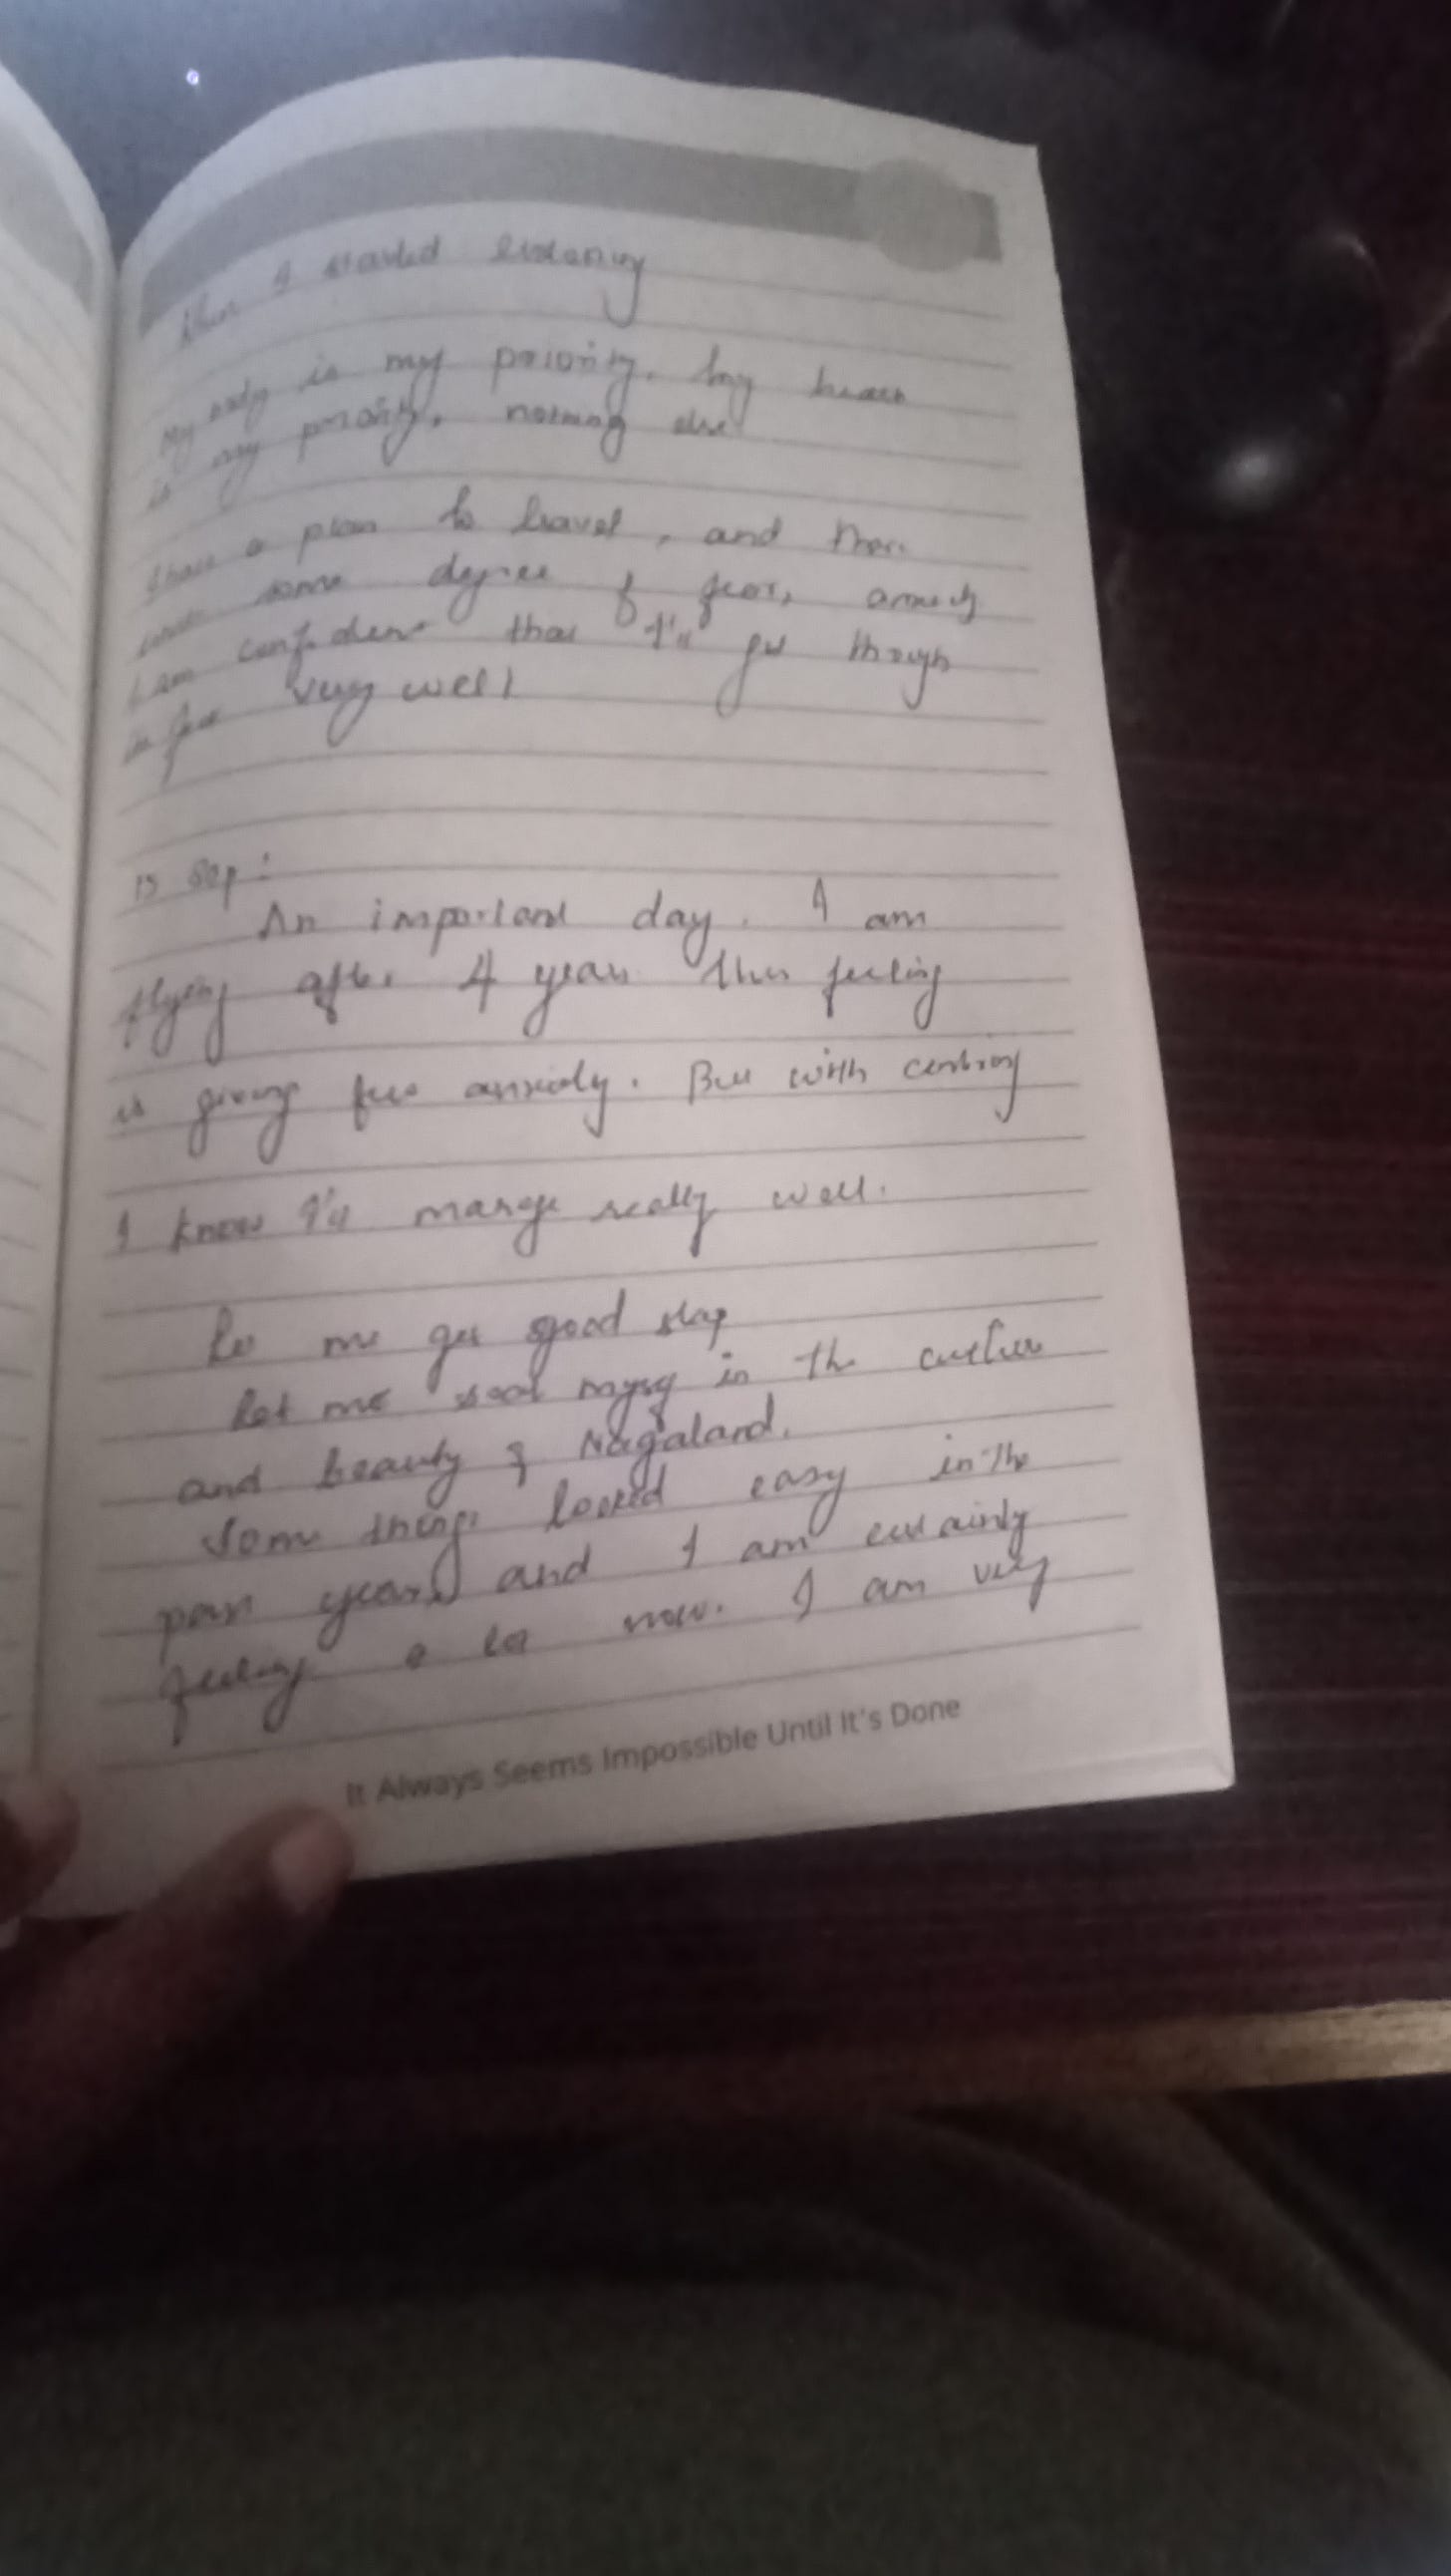 I started listening
My body is my priority. My heart
is my priority. nothing else
I have a plan to travel, and there
some degree of fear, anxiety
I am confident that I'll get through
very well
15 Sep:
An important day. I am
flying after 4 years this feeling
is giving few anxiety. But with centring
I know I'll manage really well.
Let me get good sleep
Let me soak myself in the culture
and beauty of Nagaland.
Some things looked easy in the
past years and I am certainly
feeling a lot now. I am very
It Always Seems Impossible Until It's Done